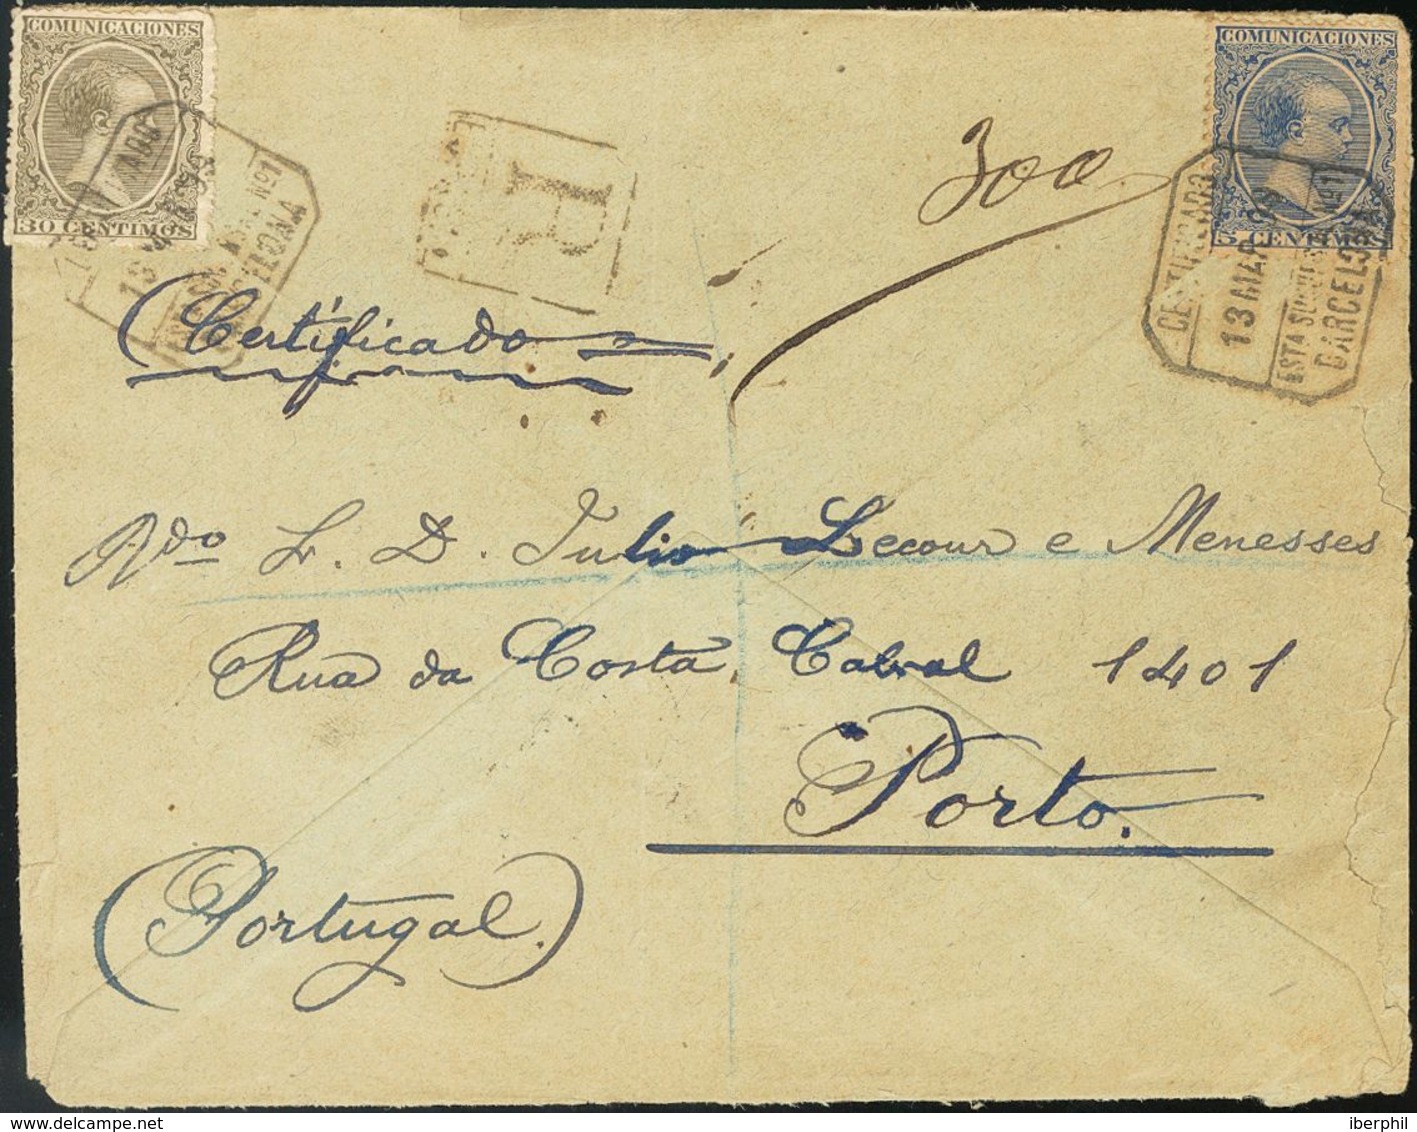 COMUNICACIONES
30 CENTIMOS
COMUNICACIONES
5 CENTIMOS
R
300
CERTIFICADO
13 MAR
BARCELONA
Nº1
Certificado
L. D. Julio Lecour e Menesses
Rua da Costa Cabral 1401
Porto.
(Portugal.)
delcampe.net
iberphil